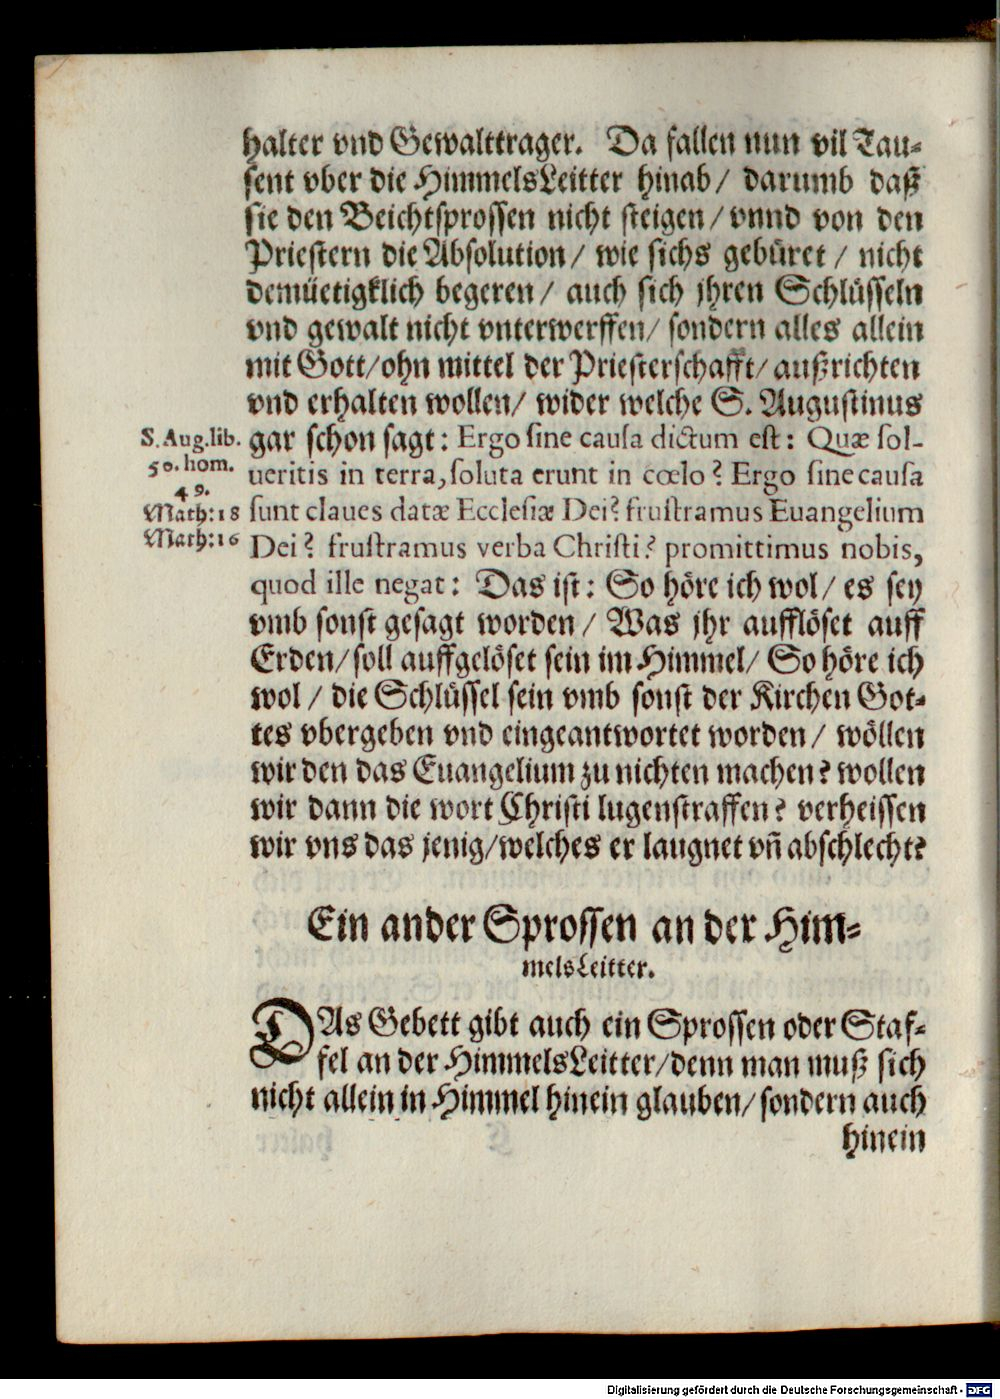 halter vnd Gewalttrager. Da fallen nun vil Tau⸗
sent vber die HimmelsLeitter hinab/ darumb daß
sie den Beichtsprossen nicht steigen/ vnnd von den
Priestern die Absolution/ wie sichs gebüret/ nicht
demüetigklich begeren/ auch sich jhren Schlüsseln
vnd gewalt nicht vnterwerffen/ sondern alles allein
mit Gott/ohn mittel der Priesterschafft/ außrichten
vnd erhalten wollen/ wider welche S. Augustinus
S. Aug.lib.
50. hom.
49.
Math:18
Math:16
gar schon sagt: Ergo ſine cauſa dictum eſt: Quæ ſol-
ueritis in terra, ſoluta erunt in cœlo? Ergo ſine cauſa
ſunt claues datæ Eccleſiæ Dei? fruſtramus Euangelium
Dei? fruſtramus verba Chriſti? promittimus nobis,
quod ille negat: Das ist: So höre ich wol/ es sey
vmb sonst gesagt worden/ Was jhr aufflöset auff
Erden/soll auffgelöset sein im Himmel/ So höre ich
wol/ die Schlüssel sein vmb sonst der Kirchen Got⸗
tes vbergeben vnd eingeantwortet worden/ wöllen
wir den das Euangelium zu nichten machen? wollen
wir dann die wort Christi lugenstraffen? verheissen
wir vns das jenig/welches er laugnet vñ abschlecht?
Ein ander Sprossen an der Him⸗
melsLeitter.
DAs Gebett gibt auch ein Sprossen oder Staf⸗
fel an der HimmelsLeitter/denn man muß sich
nicht allein in Himmel hinein glauben/ sondern auch
hinein
Digitalisierung gefördert durch die Deutsche Forschungsgemeinschaft - DFG